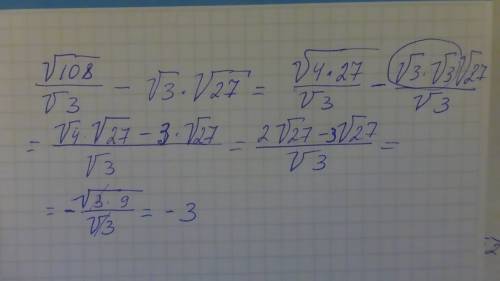 √108/√3 − √3·√27 = √(4·27)/√3 − √3·√3√27/√3
= (√4·√27 − 3·√27)/√3 = (2√27 − 3√27)/√3 =
= −√(3·9)/√3 = −3